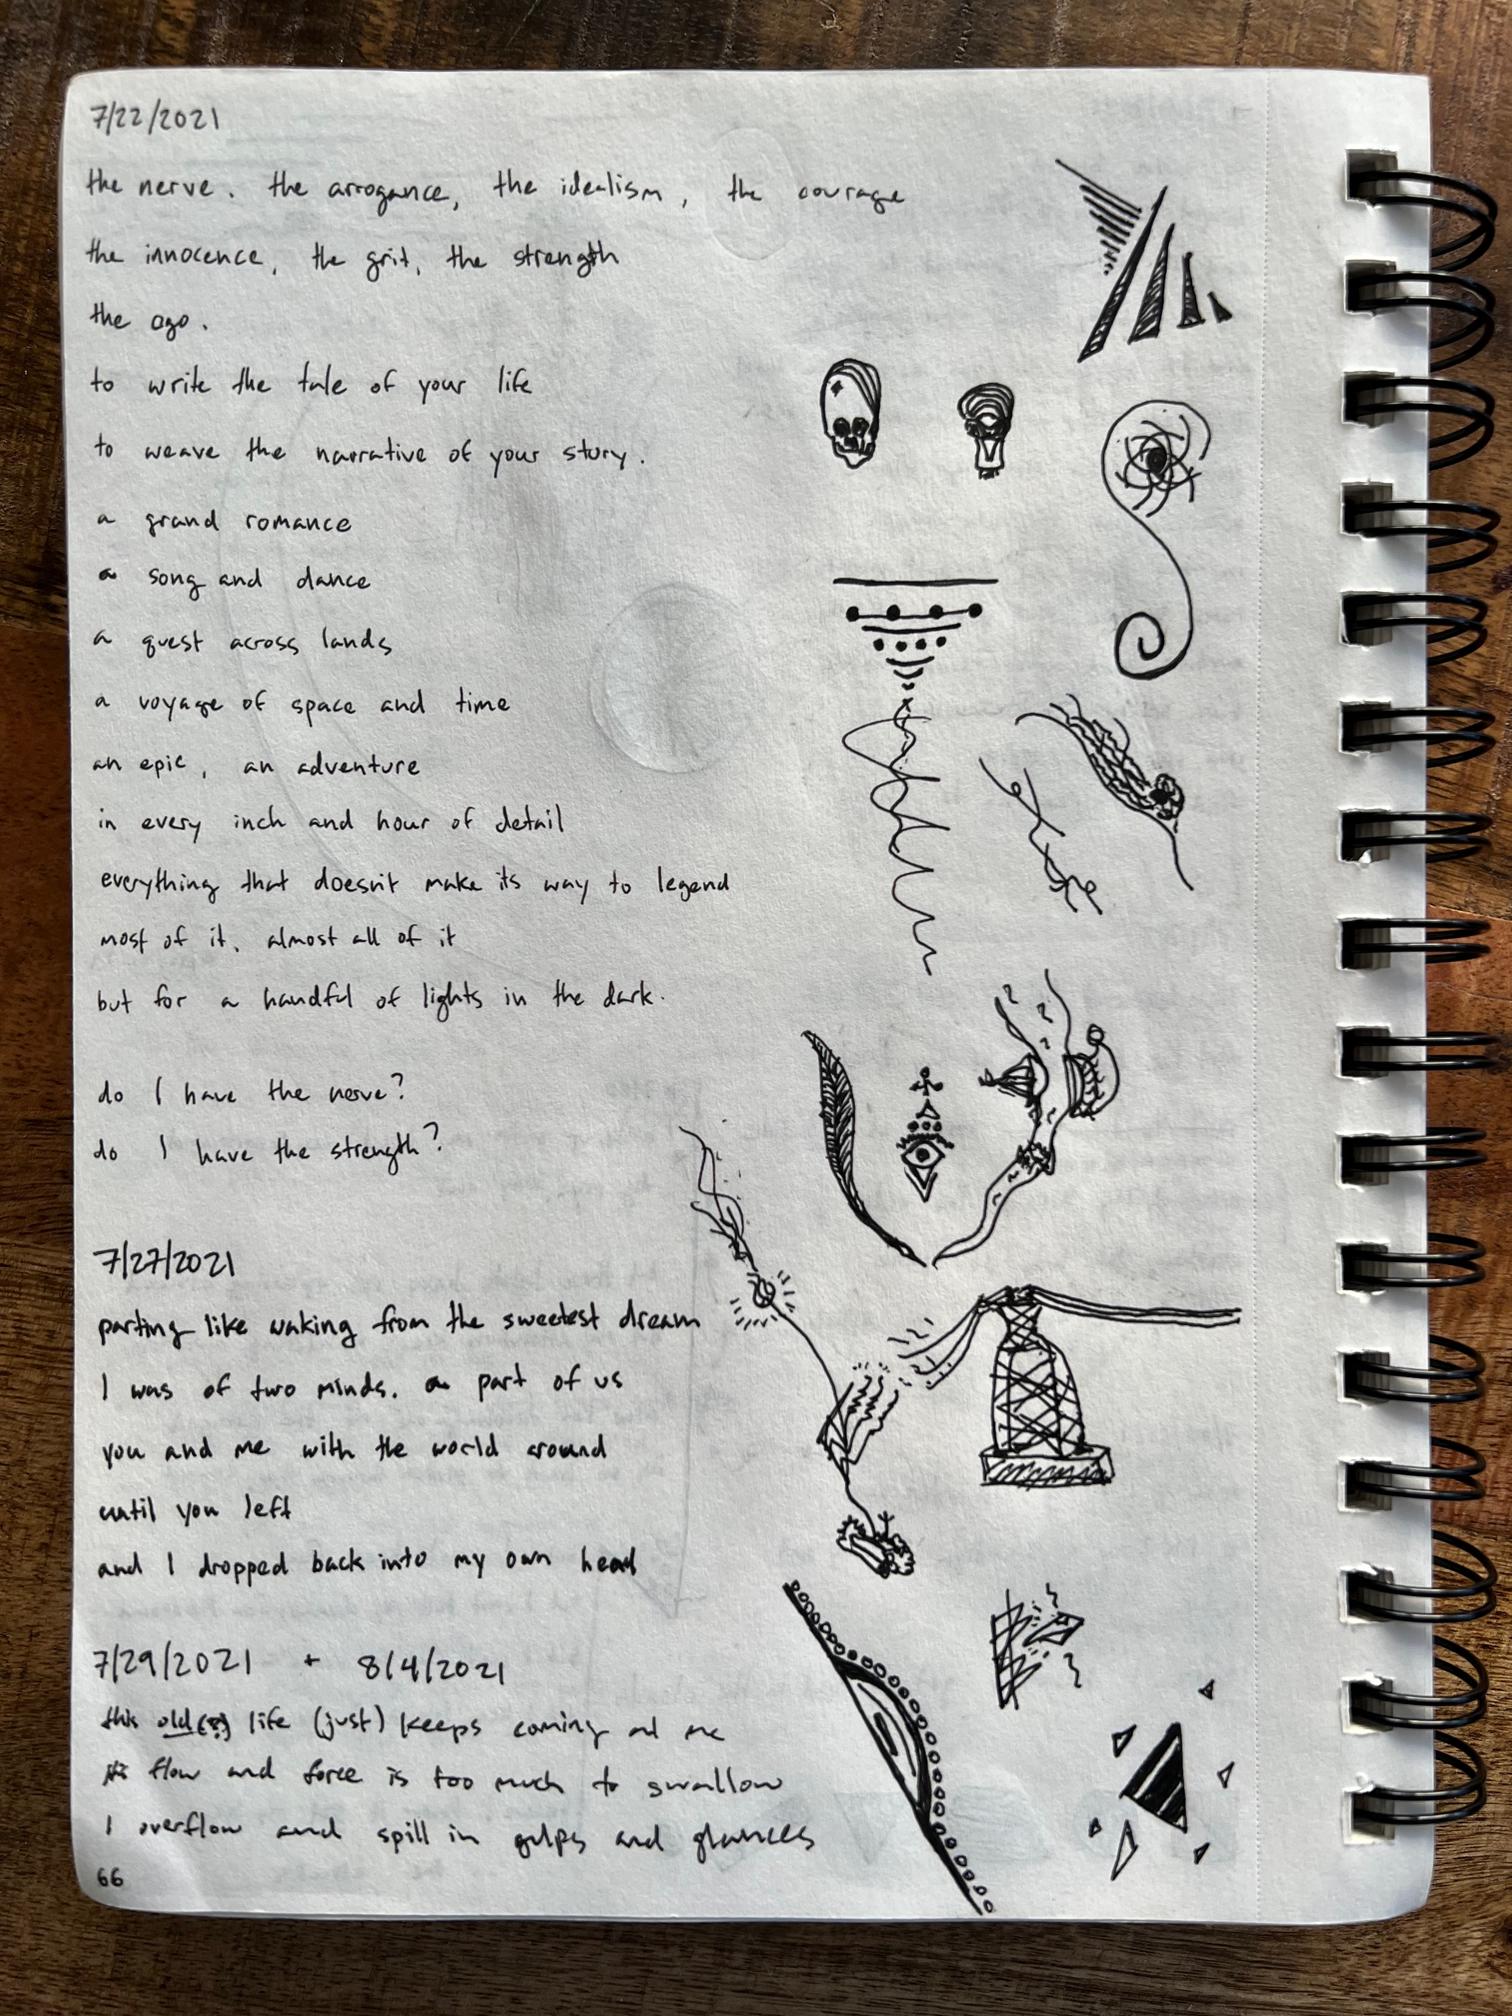 7/22/2021
the nerve. the arrogance, the idealism, the courage
the innocence, the grit, the strength
the ego.
to write the tale of your life
to weave the narrative of your story.
a grand romance
a song and dance
a quest across lands
a voyage of space and time
an epic, an adventure
in every inch and hour of detail
everything that doesn't make its way to legend
most of it, almost all of it
but for a handful of lights in the dark.
do I have the nerve?
do I have the strength?
7/27/2021
parting like waking from the sweetest dream
I was of two minds. a part of us
you and me with the world around
until you left
and I dropped back into my own head
7/29/2021 + 8/4/2021
this old(?) life (just) keeps coming at me
its flow and force is too much to swallow
I overflow and spill in gulps and glances
66